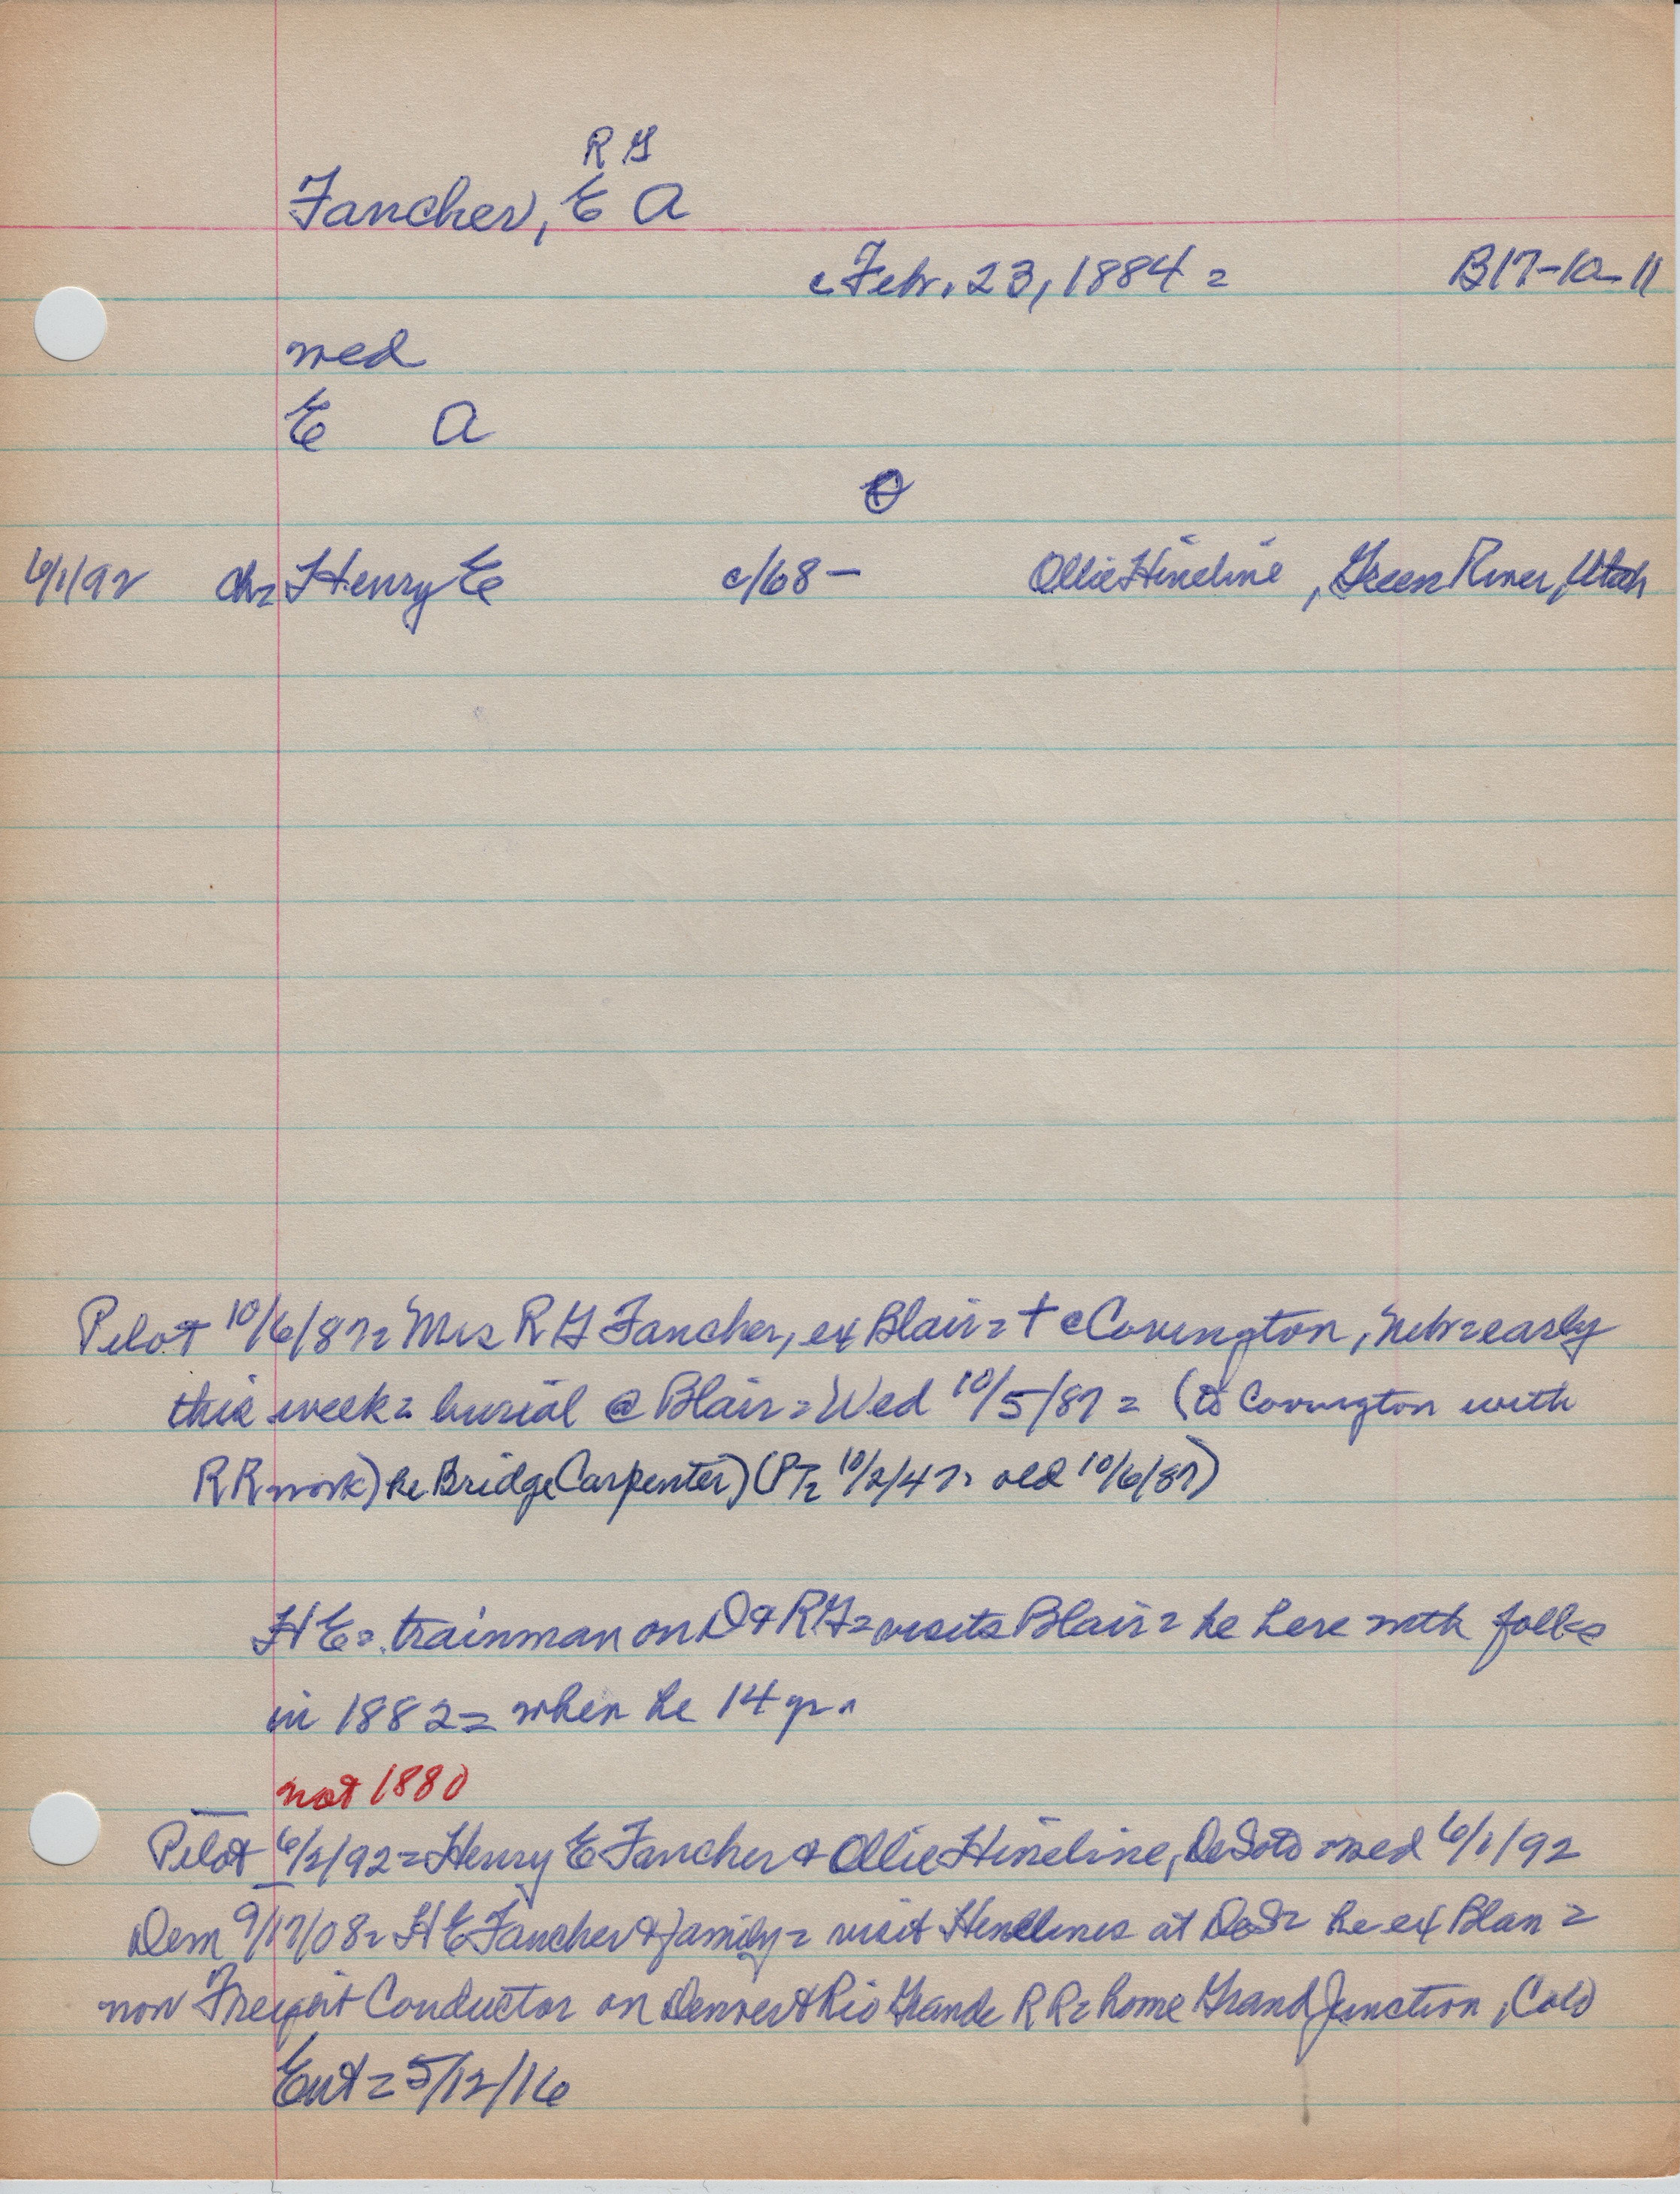 R G
Fancher, E A
c Febr. 23, 1884 = B17-10-11
med
E A
6/1/92 ch= Henry E c/68- Ollie Hineline, Green River, Utah
Pilot 10/6/87= Mrs R G Fancher, ex Blair= + c Covington, Nebr= early
this week= burial @ Blair= Wed 10/5/87 = (to Covington with
RR work) he Bridge Carpenter) (PT= 10/2/47= old 10/6/87)
H E= trainman on D & RG= visits Blair= he here with folks
in 1882= when he 14 yr.
not 1880
Pilot 6/2/92= Henry E Fancher & Ollie Hineline, DeSoto med 6/1/92
Dem 9/17/08= H E Fancher & family= visit Hinelines at DeS= he ex Blair=
now Freight Conductor on Denver & Rio Grande RR= home Grand Junction, Colo
Ent= 5/12/16